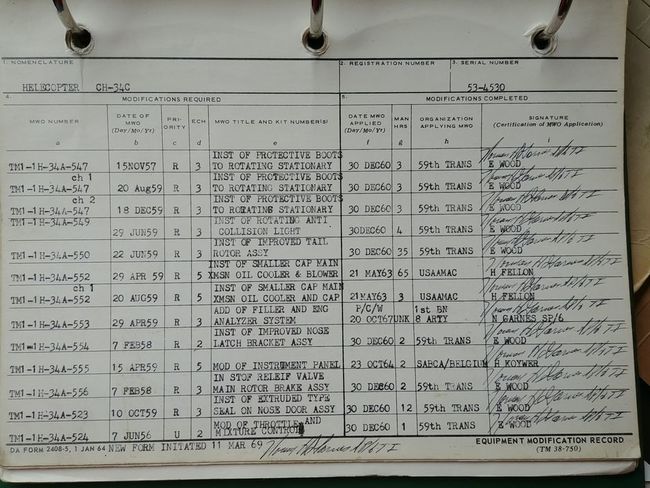 1. NOMENCLATURE 2. REGISTRATION NUMBER 3. SERIAL NUMBER
HELECOPTER CH-34C 53-4530
4. MODIFICATIONS REQUIRED 5. MODIFICATIONS COMPLETED
MWO NUMBER DATE OF MWO (Day/Mo/Yr) PRI- ORITY ECH MWO TITLE AND KIT NUMBER(S) DATE MWO APPLIED (Day/Mo/Yr) MAN HRS ORGANIZATION APPLYING MWO SIGNATURE (Certification of MWO Application)
a b c d e f g h i
INST OF PROTECTIVE BOOTS
TM1-1H-34A-547 15NOV57 R 3 TO ROTATING STATIONARY 30 DEC60 3 59th TRANS E WOOD
ch 1 INST OF PROTECTIVE BOOTS
TM1-1H-34A-547 20 Aug59 R 3 TO ROTATING STATIONARY 30 DEC60 3 59th TRANS E WOOD
ch 2 INST OF PROTECTIVE BOOTS
TM1-1H-34A-547 18 DEC59 R 3 TO ROTATING STATIONARY 30 DEC60 3 59th TRANS E WOOD
TM1-1H-34A-549 INST OF ROTATING ANTI
29 JUN59 R 3 COLLISION LIGHT 30DEC60 4 59th TRANS E WOOD
INST OF IMPROVED TAIL
TM1-1H-34A-550 22 JUN59 R 3 ROTOR ASSY 30 DEC60 35 59th TRANS E WOOD
INST OF SMALLER CAP MAIN
TM1-1H-34A-552 29 APR 59 R 5 XMSN OIL COOLER & BLOWER 21 MAY63 65 USAAMAC H FELLON
ch 1 INST OF SMALLER CAP MAIN
TM1-1H-34A-552 20 AUG59 R 5 XMSN OIL COOLER AND CAP 21MAY63 3 USAAMAC H FELLON
ADD OF FILLER AND ENG P/C/W 1st BN
TM1-1H-34A-553 29 APR59 R 3 ANALYZER SYSTEM 20 OCT67UNK 8 ARTY N GARNES SP/6
INST OF IMPROVED NOSE
TM1-1H-34A-554 7 FEB58 R 2 LATCH BRACKET ASSY 30 DEC60 2 59th TRANS E WOOD
TM1-1H-34A-555 15 APR59 R 5 MOD OF INSTRUMENT PANEL 23 OCT64 2 SABCA/BELGIUM H KOYWER
IN STOF RELEIF VALVE
TM1-1H-34A-556 7 FEB58 R 3 MAIN ROTOR BRAKE ASSY 30 DEC60 2 59th TRANS E WOOD
INST OF EXTRUDED TYPE
TM1-1H-34A-523 10 OCT59 R 3 SEAL ON NOSE DOOR ASSY 30 DEC60 12 59th TRANS E WOOD
MOD OF THROTTLE AND
TM1-1H-34A-524 7 JUN56 U 2 MIXTURE CONTROL 30 DEC60 1 59th TRANS E WOOD
DA FORM 2408-5, 1 JAN 64 NEW FORM INITATED 11 MAR 69 EQUIPMENT MODIFICATION RECORD
(TM 38-750)